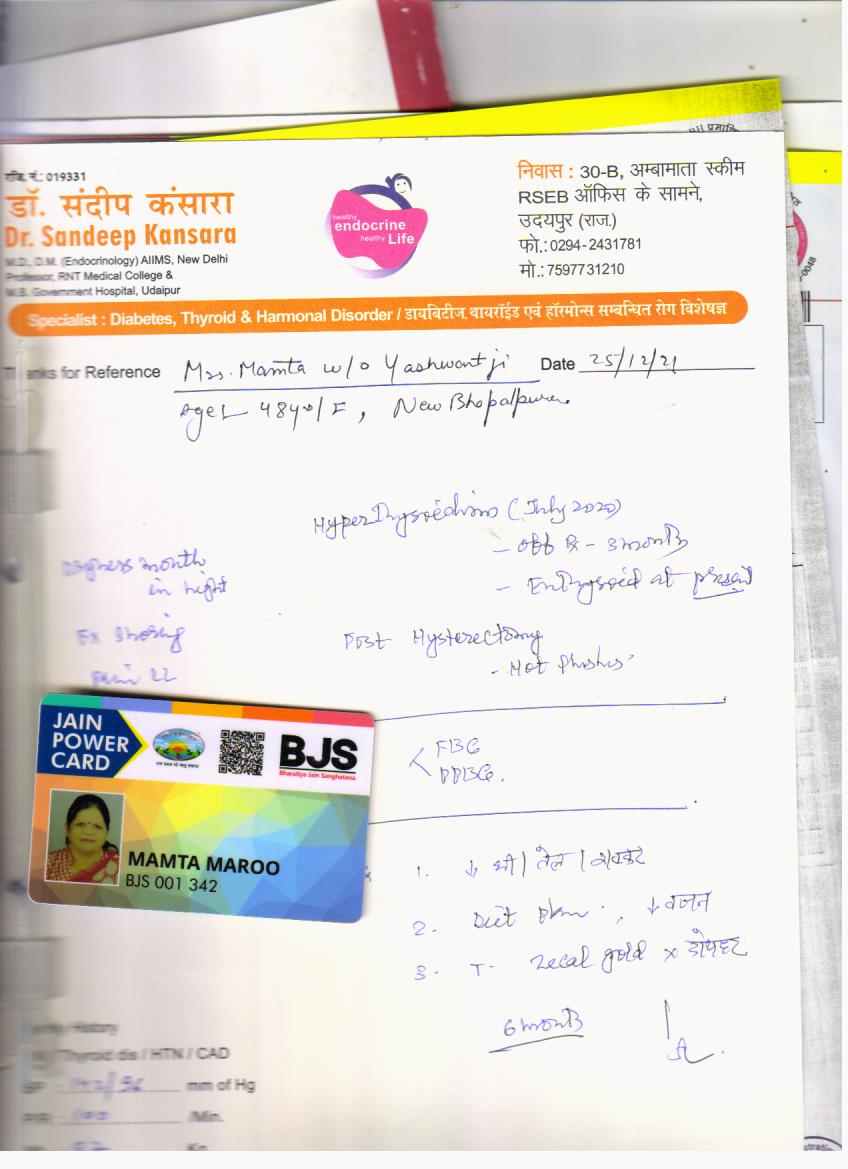 रजि. नं.: 019331
डॉ. संदीप कंसारा
Dr. Sandeep Kansara
M.D., D.M. (Endocrinology) AIIMS, New Delhi
Professor, RNT Medical College &
M.B. Government Hospital, Udaipur
healthy
endocrine
healthy Life
निवास : 30-B, अम्बामाता स्कीम
RSEB ऑफिस के सामने,
उदयपुर (राज.)
फो.:0294-2431781
मो.: 7597731210
Specialist : Diabetes, Thyroid & Harmonal Disorder / डायबिटीज, थायरॉईड एवं हॉरमोन्स सम्बन्धित रोग विशेषज्ञ
Thanks for Reference Mrs. Mamta w/o Yashwant ji Date 25/12/21
Age 48 /F, New Bhopalpura
Hyperthyroidism (July 2020)
- Off Rx - 3 months
- Euthyroid at present
Dryness mouth
in night
Post Hysterectomy
- Hot flushes
FBG
PPBG.
JAIN
POWER
CARD
BJS
Bharatiya Jain Sanghatana
MAMTA MAROO
BJS 001 342
1. ↓ घी / तेल / शक्कर
2. Diet plan , ↓ वजन
3. T- Zecal gold x दोपहर
6 months
History
Thyroid dis / HTN / CAD
BP mm of Hg
100 /Min.
Kg
0048